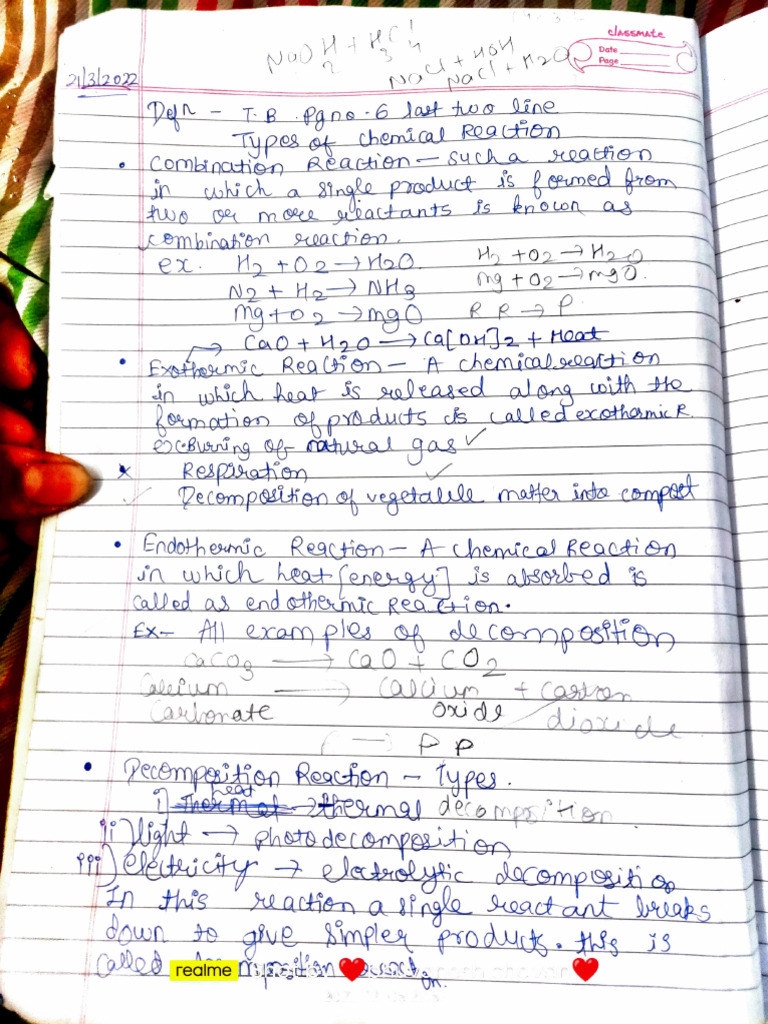 classmate
Date
Page
NaOH + HCl
NaCl + HOH
NaCl + H2O
21/3/2022
Defn - T.B Pg no. 6 last two line
Types of Chemical Reaction
• Combination Reaction - such a reaction
in which a single product is formed from
two or more reactants is known as
combination reaction.
ex. H2 + O2 → H2O. H2 + O2 → H2O
N2 + H2 → NH3 Mg + O2 → MgO.
Mg + O2 → MgO R R → P
CaO + H2O → Ca[OH]2 + Heat
• Exothermic Reaction - A chemical reaction
in which heat is released along with the
formation of products is called exothermic R.
ex: Burning of natural gas ✓
Respiration ✓
✓ Decomposition of vegetable matter into compost
• Endothermic Reaction - A chemical Reaction
in which heat [energy] is absorbed is
called as endothermic Reaction.
Ex- All examples of decomposition
CaCO3 → CaO + CO2
Calcium → Calcium + Carbon
Carbonate oxide dioxide
→ P P
• Decomposition Reaction - Types.
i) heat → thermal decomposition
ii) light → photodecomposition
iii) electricity → electrolytic decomposition
In this reaction a single reactant breaks
down to give simpler products. this is
called
realme